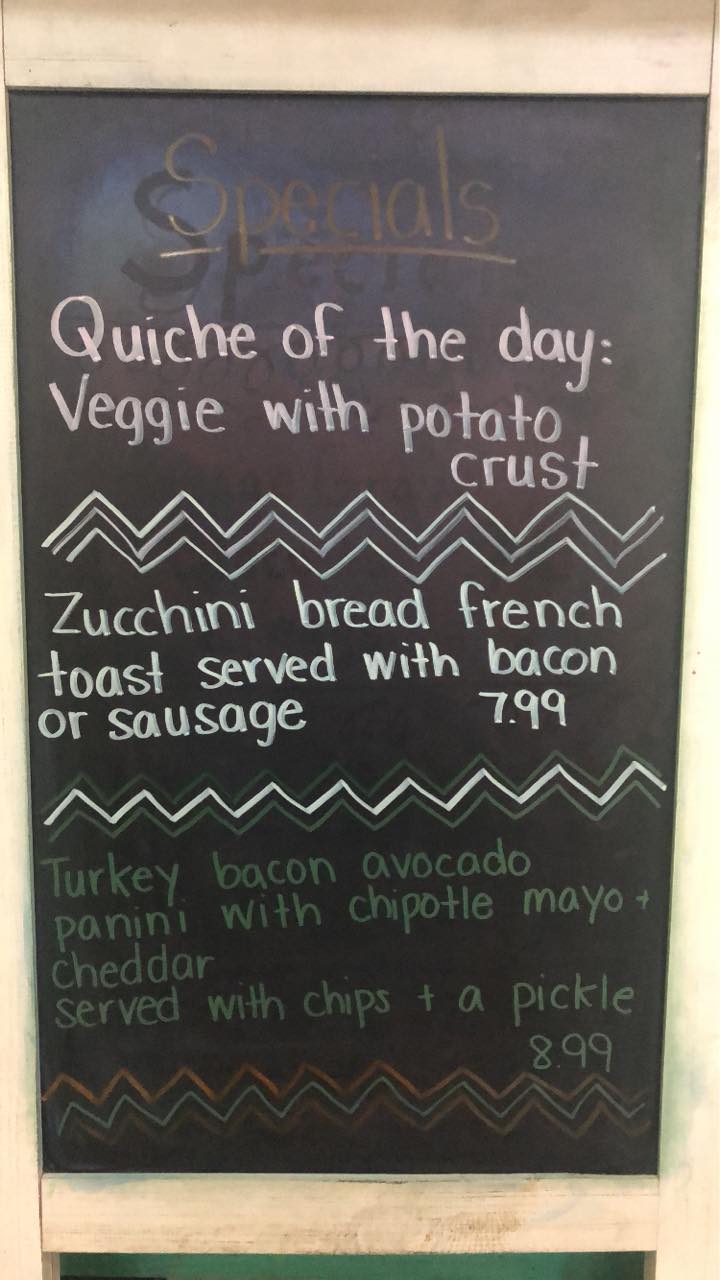 Specials
Quiche of the day:
Veggie with potato
crust
Zucchini bread french
toast served with bacon
or sausage 7.99
Turkey bacon avocado
panini with chipotle mayo +
cheddar
served with chips + a pickle
8.99